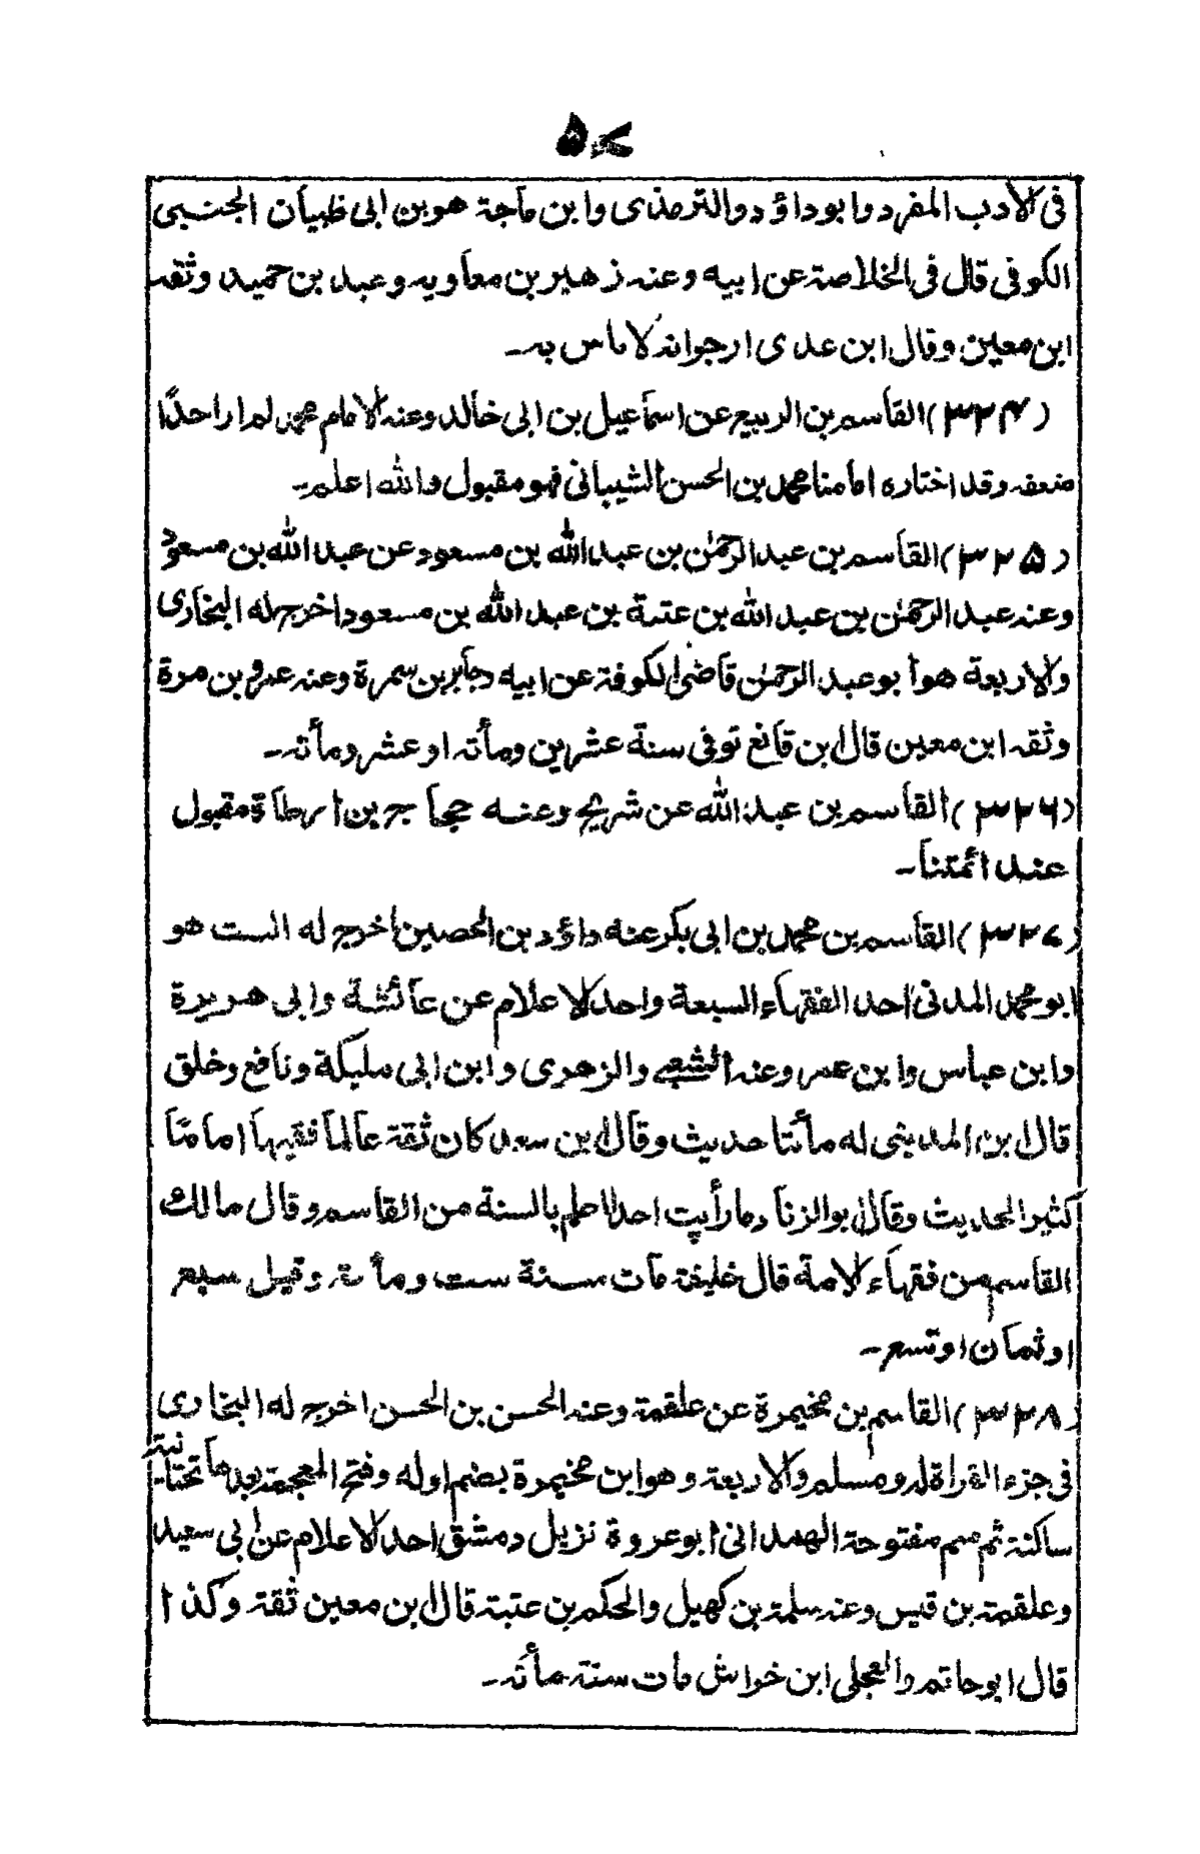 ۵۷
فی الادب المفرد وابوداؤد والترمذی وابن ماجة هو بن ابی ظبیان الجنبی
الکوفی قال فی الخلاصة عن ابیه وعنه زهیر بن معاویه وعبد بن حمید وثقه
ابن معین وقال ابن عدی ارجو انه لا باس به۔
(۳۲۴) القاسم بن الربیع عن اسماعیل بن ابی خالد وعنه الامام محمد لم ار احدًا
ضعفه وقد اختاره امامنا محمد بن الحسن الشیبانی فهو مقبول والله اعلم۔
(۳۲۵) القاسم بن عبد الرحمٰن بن عبد الله بن مسعود عن عبد الله بن مسعود
وعنه عبد الرحمٰن بن عبد الله بن عتبة بن عبد الله بن مسعود اخرجله البخاری
والاربعة هو أبو عبد الرحمٰن قاضی الکوفة عن ابیه وجابر بن سمرة وعنه عمرو بن مرة
وثقه ابن معین قال ابن قانع توفی سنة عشرین ومأته او عشر ومأته۔
(۳۲۶) القاسم بن عبد الله عن شریح وعنه حجاج بن ارطاة مقبول
عند ائمتنا۔
(۳۲۷) القاسم بن محمد بن ابی بکر عنه داؤد بن الحصین اخرج له الست هو
ابو محمد المدنی احد الفقهاء السبعة واحد الاعلام عن عائشة وابی هریرة
وابن عباس وابن عمر وعنه الشعبی والزهری وابن ابی ملیکة ونافع وخلق
قال ابن المدینی له مأتا حدیث وقال ابن سعد کان ثقة عالما فقیها اماما
کثیر الحدیث وقال ابو الزناد ما رأیت احدا اعلم بالسنة من القاسم وقال مالك
القاسم من فقهاء الامة قال خلیفة مات سنة ست ومأته وقیل سبع
او ثمان او تسع۔
(۳۲۸) القاسم بن مخیمرة عن علقمة وعنه الحسن بن الحسن اخرج له البخاری
فی جزء القراة له ومسلم والاربعة وهو ابن مخیمرة بضم اوله وفتح المعجمة بعدها تحتانیة
ساکنة ثم میم مفتوحة الهمدانی ابو عروة نزیل دمشق احد الاعلام عن ابی سعید
وعلقمة بن قیس وعنه سلمة بن کهیل والحکم بن عتبة قال ابن معین ثقة وکذا
قال ابو حاتم والعجلی ابن خراش مات سنة مأته۔